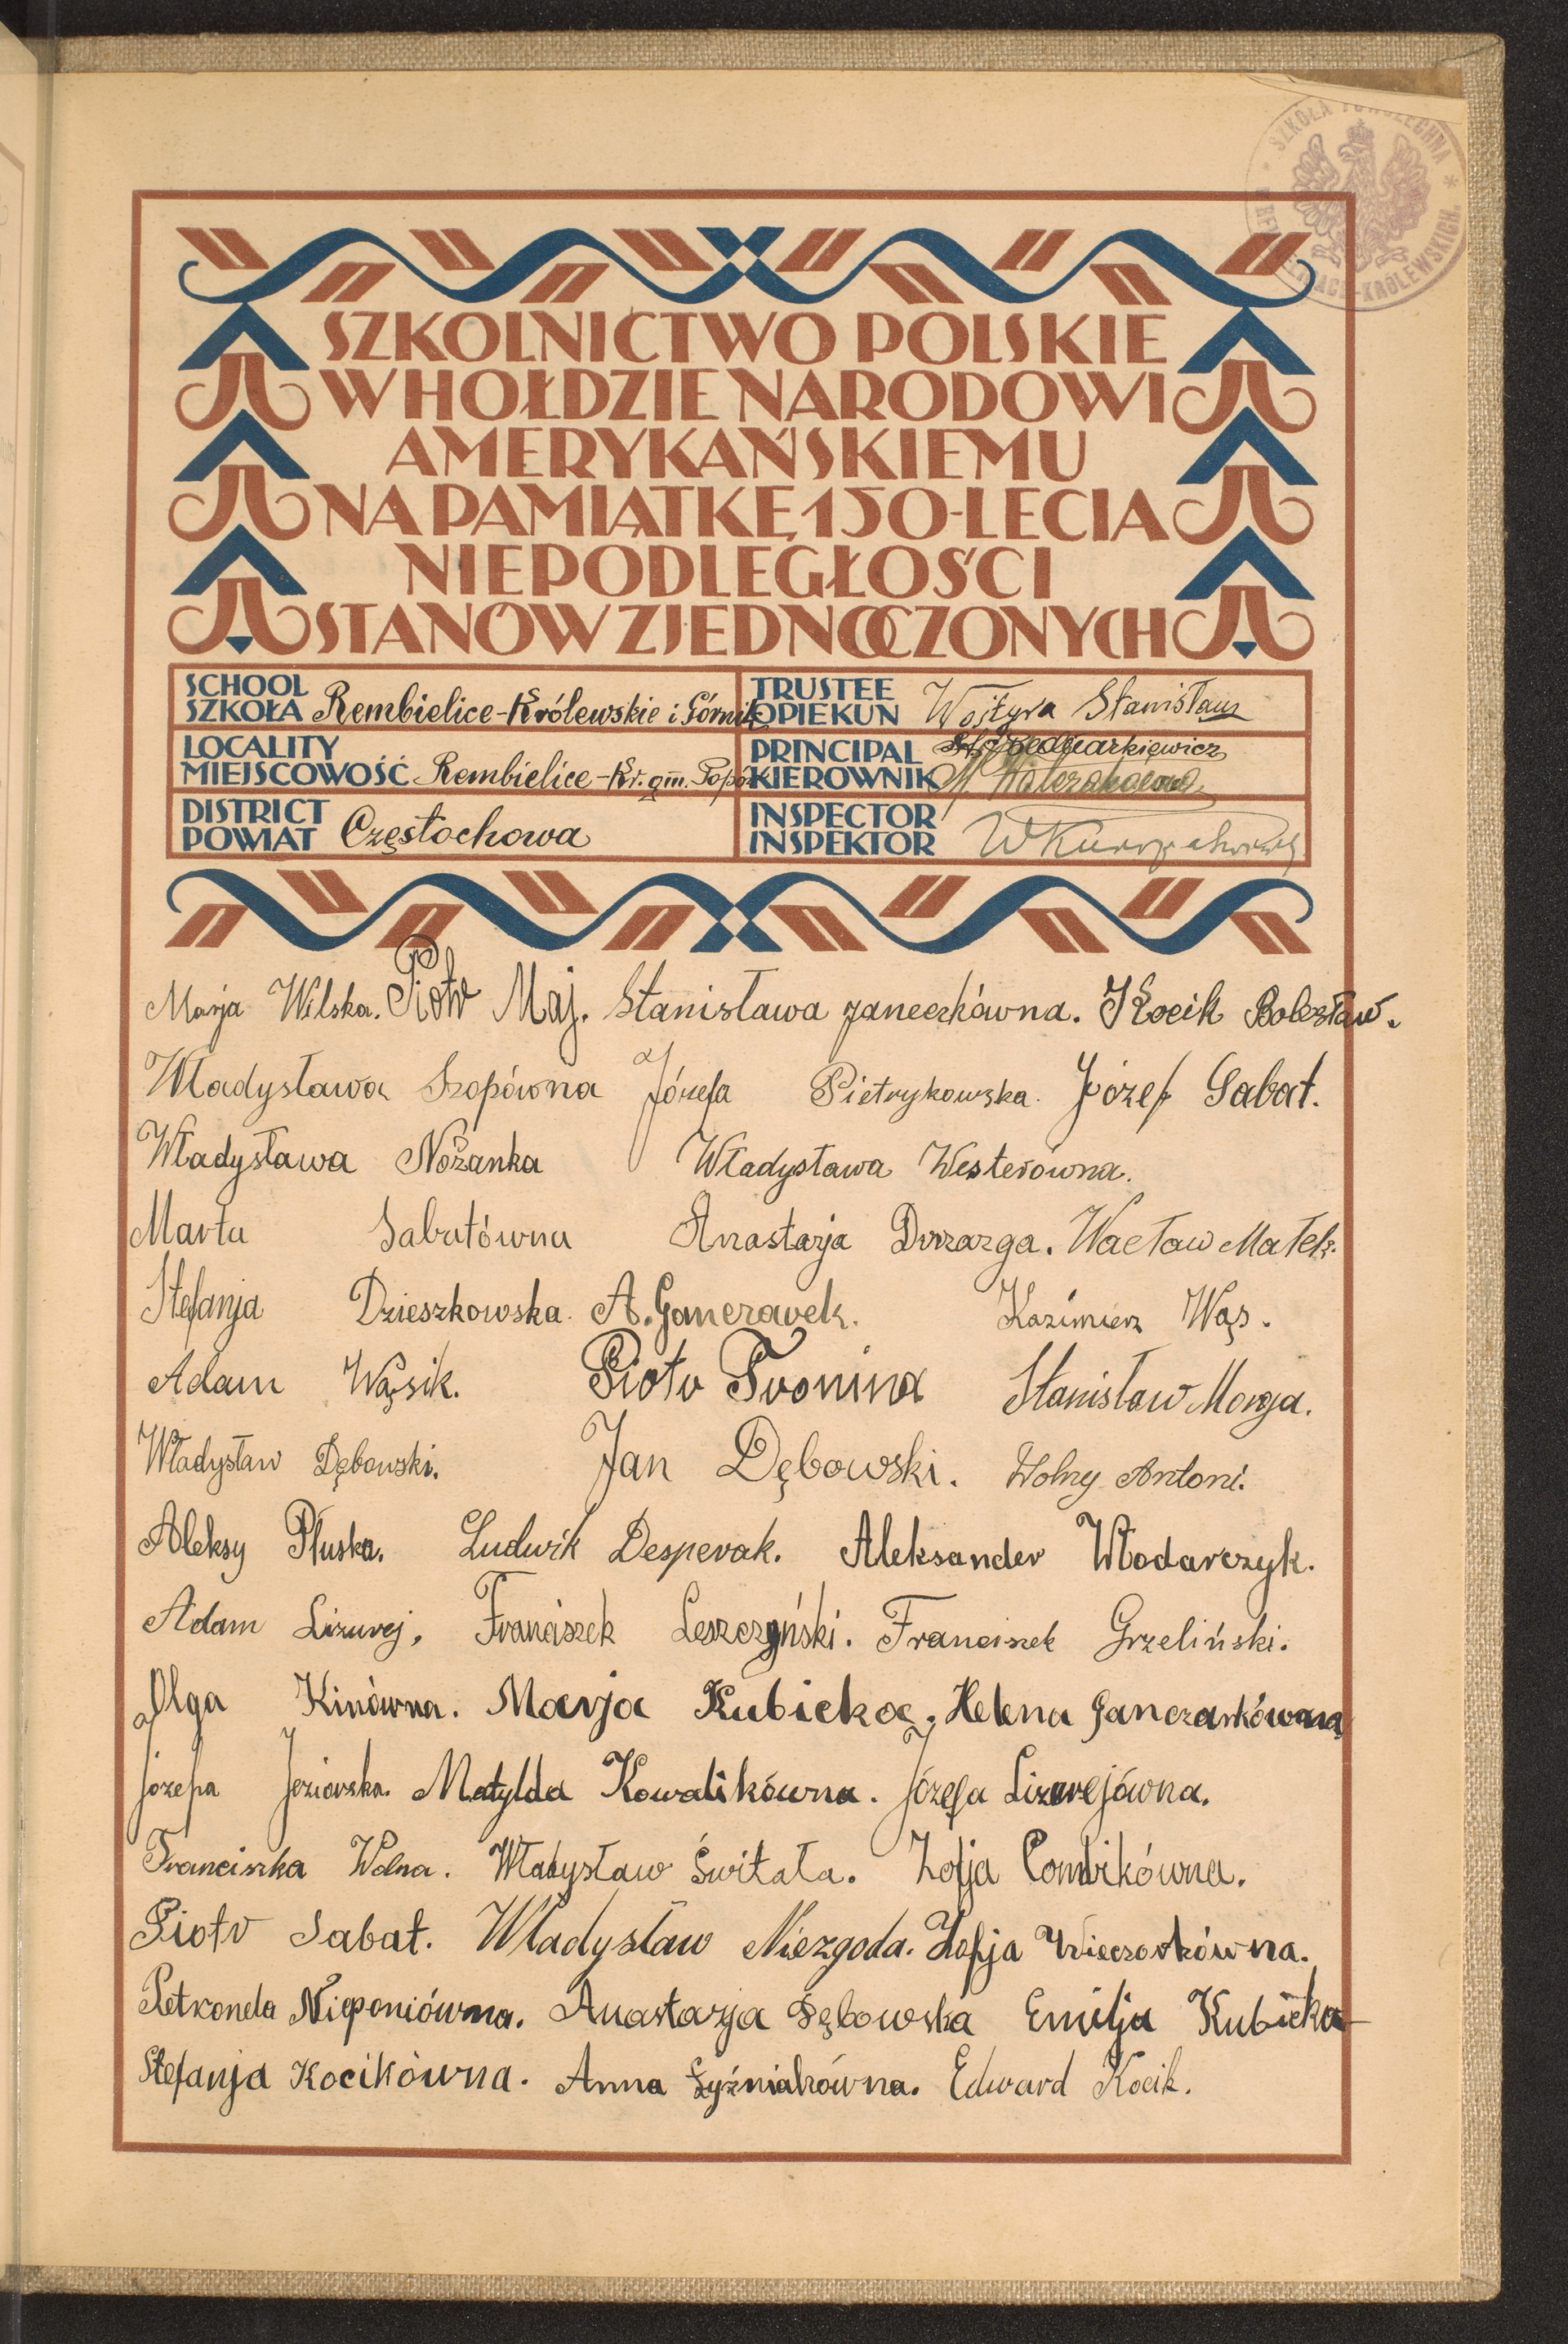 SZKOŁA POWSZECHNA * KRÓLEWSKICH *
SZKOLNICTWO POLSKIE
W HOŁDZIE NARODOWI
AMERYKAŃSKIEMU
NA PAMIĄTKĘ 150-LECIA
NIEPODLEGŁOŚCI
STANÓW ZJEDNOCZONYCH
SCHOOL
SZKOŁA Rembielice-Królewskie i Górnik
TRUSTEE
OPIEKUN Wojtyra Stanisław
LOCALITY
MIEJSCOWOŚĆ Rembielice-Kr. gm.
PRINCIPAL
KIEROWNIK
DISTRICT
POWIAT Częstochowa
INSPECTOR
INSPEKTOR
Marja Wilska. Piotr Maj. Stanisława Janeczkówna. Kocik Bolesław.
Władysława Szopówna Józefa Pietrykowska. Józef Sabat.
Władysława Nożanka Władysława Westerówna.
Marta Sabatówna Anastazja Drzazga. Wacław Małek.
Stefanja Dzieszkowska. A. Gancrarek. Kazimierz Wąs.
Adam Wąsik. Piotr Tronina Stanisław Morga.
Władysław Dębowski. Jan Dębowski. Wolny Antoni.
Aleksy Płuska. Ludwik Desperak. Aleksander Włodarczyk.
Adam Lizurej, Franciszek Leszczyński. Franciszek Grzeliński.
Olga Kinówna. Marja Kubicka. Helena Ganczarkówna
Józefa Jeziorska. Matylda Kowalikówna. Józefa Lizurejówna.
Franciszka Wolna. Władysław Świtała. Zofja Combikówna.
Piotr Sabat. Władysław Niezgoda. Zofja Wieczorkówna.
Petronela Nieponiówna. Anastazja Dębowska Emilja Kubicka
Stefanja Kocikówna. Anna Łyźniakówna. Edward Kocik.